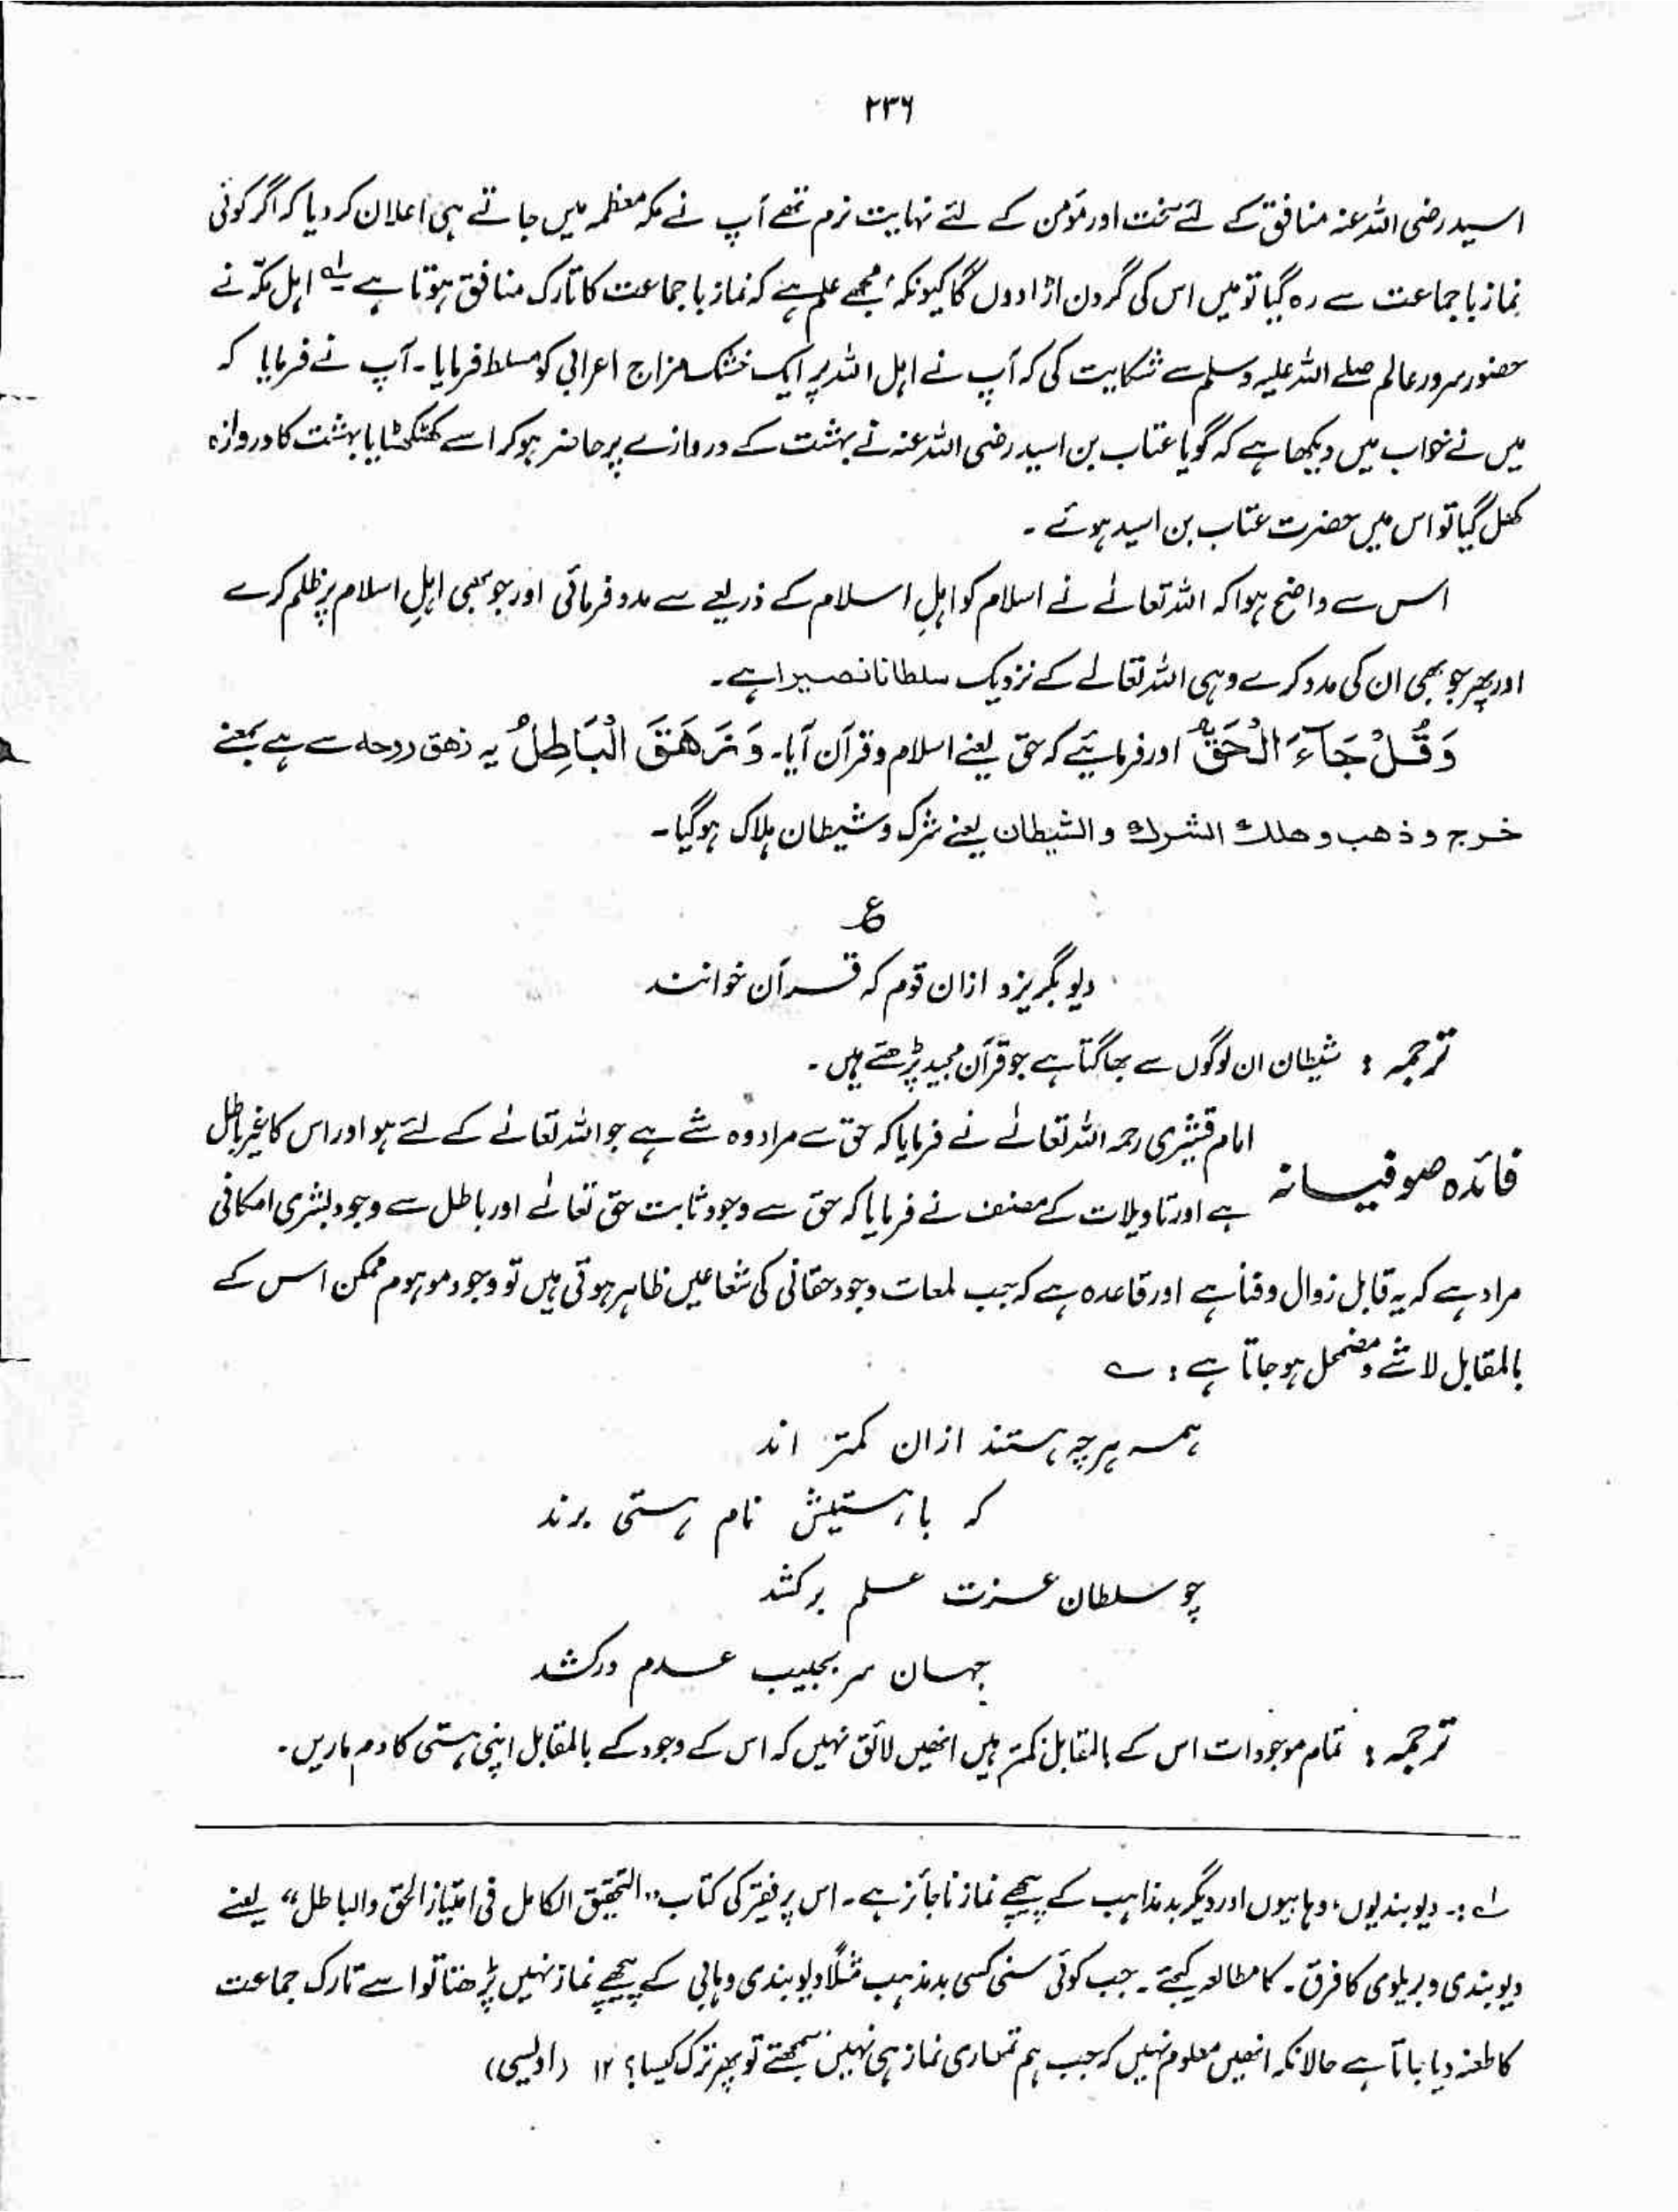 ۲۳۶
اسید رضی اللہ عنہ منافق کے لئے سخت اور مؤمن کے لئے نہایت نرم تھے آپ نے مکہ معظمہ میں جاتے ہی اعلان کر دیا کہ اگر کوئی
نماز با جماعت سے رہ گیا تو میں اس کی گردن اڑا دوں گا کیونکہ مجھے علم ہے کہ نماز با جماعت کا تارک منافق ہوتا ہے لہ اہل مکّہ نے
حضور سرور عالم صلے اللہ علیہ وسلم سے شکایت کی کہ آپ نے اہل اللہ پر ایک خشک مزاج اعرابی کو مسلط فرمایا۔ آپ نے فرمایا کہ
میں نے خواب میں دیکھا ہے کہ گویا عتاب بن اسید رضی اللہ عنہ نے بہشت کے دروازے پر حاضر ہو کر اسے کھٹکھٹایا بہشت کا دروازہ
کھل گیا تو اس میں حضرت عتاب بن اسید ہوئے ۔
اس سے واضح ہوا کہ اللہ تعالےٰ نے اسلام کو اہلِ اسلام کے ذریعے سے مدد فرمائی اور جو بھی اہلِ اسلام پر ظلم کرے
اور پھر جو بھی ان کی مدد کرے وہی اللہ تعالےٰ کے نزدیک سلطانا نصیرا ہے۔
وَقُلْ جَآءَ الْحَقُّ اور فرمائیے کہ حق یعنے اسلام و قرآن آیا۔ وَزَهَقَ الْبَاطِلُ یہ زهق روحه سے ہے بمعنے
خرج و ذهب و هلك الشرك والشيطان یعنے شرک و شیطان ہلاک ہو گیا۔
ع
دیو بگریزد ازان قوم کہ قرآن خوانند
ترجمہ : شیطان ان لوگوں سے بھاگتا ہے جو قرآن مجید پڑھتے ہیں ۔
فائدہ صوفیانہ امام قشیری رحمہ اللہ تعالےٰ نے فرمایا کہ حق سے مراد وہ شے ہے جو اللہ تعالےٰ کے لئے ہو اور اس کا غیر باطل
ہے اور تاویلات کے مصنف نے فرمایا کہ حق سے وجود ثابت حق تعالےٰ اور باطل سے وجود بشری امکانی
مراد ہے کہ یہ قابل زوال و فنا ہے اور قاعدہ ہے کہ جب لمعات وجود حقانی کی شعاعیں ظاہر ہوتی ہیں تو وجود موہوم ممکن اس کے
بالمقابل لا شے و مضمحل ہو جاتا ہے : ؎
ہمہ ہرچہ ہستند ازان کمتر اند
کہ با ہستیش نام ہستی برند
چو سلطان عزت علم برکشد
جہان سر بجیب عدم درکشد
ترجمہ : تمام موجودات اس کے بالمقابل کمتر ہیں انھیں لائق نہیں کہ اس کے وجود کے بالمقابل اپنی ہستی کا دم ماریں ۔
لہ :۔ دیوبندیوں، وہابیوں اور دیگر بد مذاہب کے پیچھے نماز ناجائز ہے۔ اس پر فقیر کی کتاب "التحقیق الکامل فی امتیاز الحق والباطل" یعنے
دیوبندی و بریلوی کا فرق ۔ کا مطالعہ کیجئے ۔ جب کوئی سنی کسی بد مذہب مثلاً دیوبندی وہابی کے پیچھے نماز نہیں پڑھتا تو اسے تارک جماعت
کا طعنہ دیا جاتا ہے حالانکہ انھیں معلوم نہیں کہ جب ہم تمھاری نماز ہی نہیں سمجھتے تو پھر ترک کیسا؟ ۱۲ (اویسی)